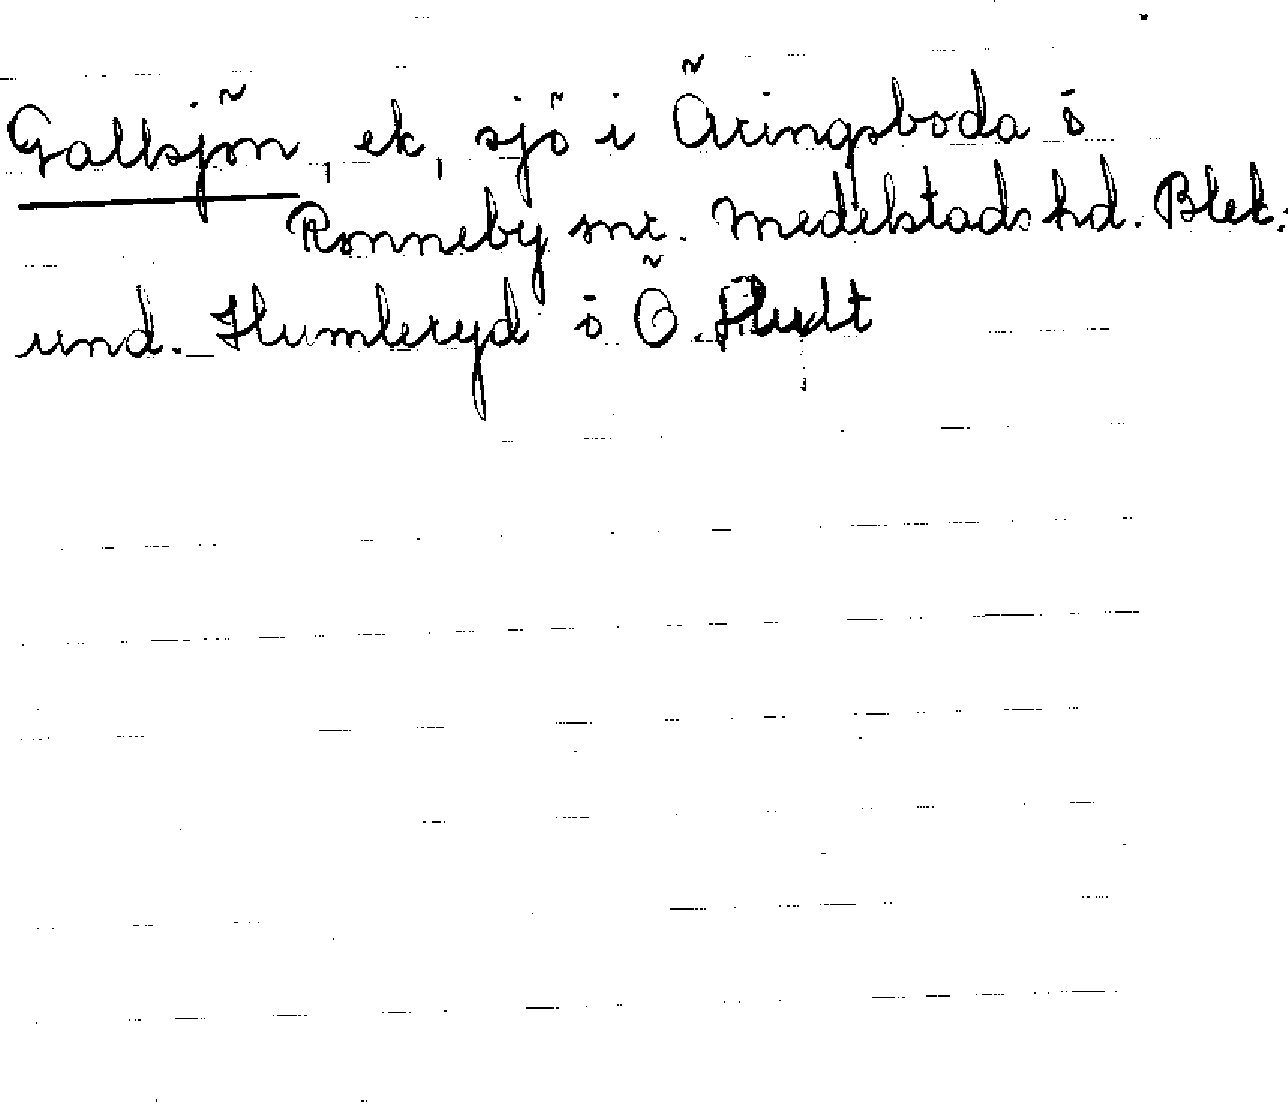 Gallsjön, ek, sjö i Äringsboda i
Ronneby snr. Medelstads hd. Blek.
und. Humleryd i Ö. Hult